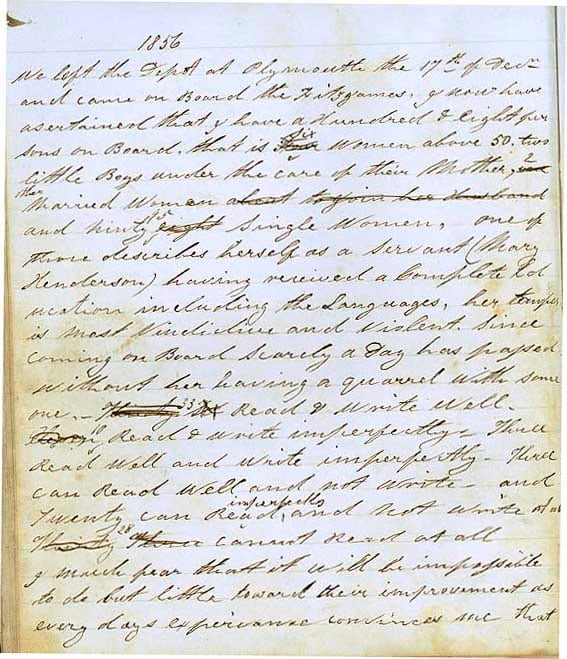 1856
We left the Depot at Plymouth the 17th of Decr
and came on Board the Fitzjames. I now have
asertained that I have a Hundred & Eight per
sons on Board. that is six Women above 50. two
little Boys under the care of their Mother, 2
other
Married Women about to join her Husband
and Ninty eight Single Women, one of
those describes herself as a Servant (Mary
Henderson) having received a Complete Ed
ucation including the Languages, her temper
is most Vindictive and Violent. Since
coming on Board Scarcly a Day has passed
without her having a quarrel with some
one. – Thirty 33 Read & Write Well –
Read & write imperfectly – Three
Read Well and write imperfectly – Three
can Read Well and not write – and
imperfectly
Twenty can Read, and not write
Thirty 28 Three cannot Read at all
I much fear that it will be impossible
to do but little toward their improvement as
every days experiance convinces me that